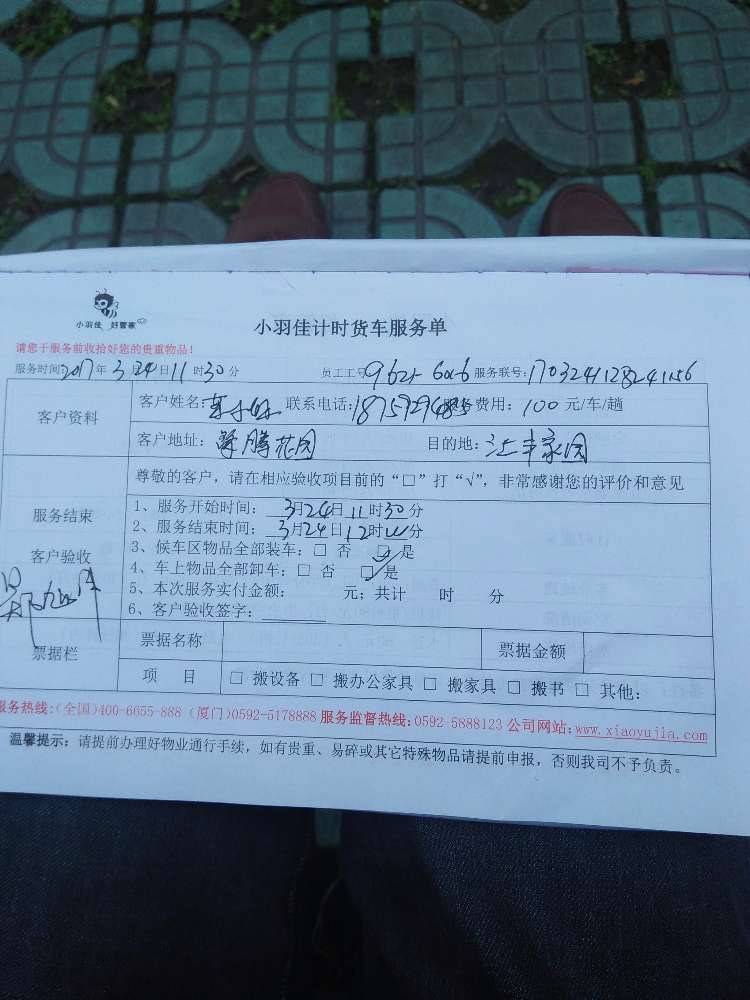 小羽佳 好管家
小羽佳计时货车服务单
请您于服务前收拾好您的贵重物品!
服务时间2017年3月24日11时30分 员工工号 服务联号:
客户资料
客户姓名: 联系电话: 费用: 100元/车/趟
客户地址: 腾花园 目的地: 汇丰家园
尊敬的客户,请在相应验收项目前的“□”打“√”,非常感谢您的评价和意见
服务结束
客户验收
1、服务开始时间: 3月24日11时30分
2、服务结束时间: 3月24日12时 分
3、候车区物品全部装车: □ 否 □ 是
4、车上物品全部卸车: □ 否 □ 是
5、本次服务实付金额: 元; 共计 时 分
6、客户验收签字:
票据栏
票据名称 票据金额
项 目 □ 搬设备 □ 搬办公家具 □ 搬家具 □ 搬书 □ 其他:
服务热线:(全国)400-6655-888 (厦门)0592-5178888 服务监督热线:0592-5888123 公司网站:www.xiaoyujia.com
温馨提示: 请提前办理好物业通行手续,如有贵重、易碎或其它特殊物品请提前申报,否则我司不予负责。